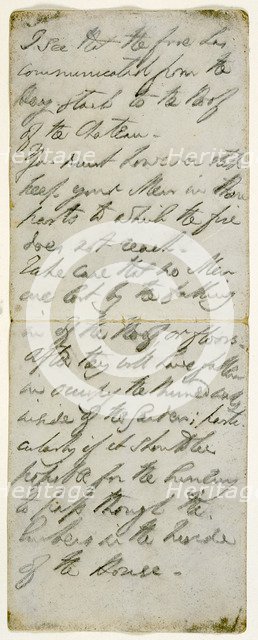 I see that the fire has
communicated from the
Hay Stack to the Roof
of the Chateau.
You must however still
keep your Men in those
parts to which the fire
does not reach.
Take care that no Men
are lost by the falling
in of the Roof, or floors.
After they will have fallen
in occupy the Ruined Walls
inside of the Garden; parti
cularly if it should be
possible for the Enemy
to pass through the
Embers in the Inside
of the House.
Heritage
Heritage
Heritage
Heritage
Heritage
Heritage